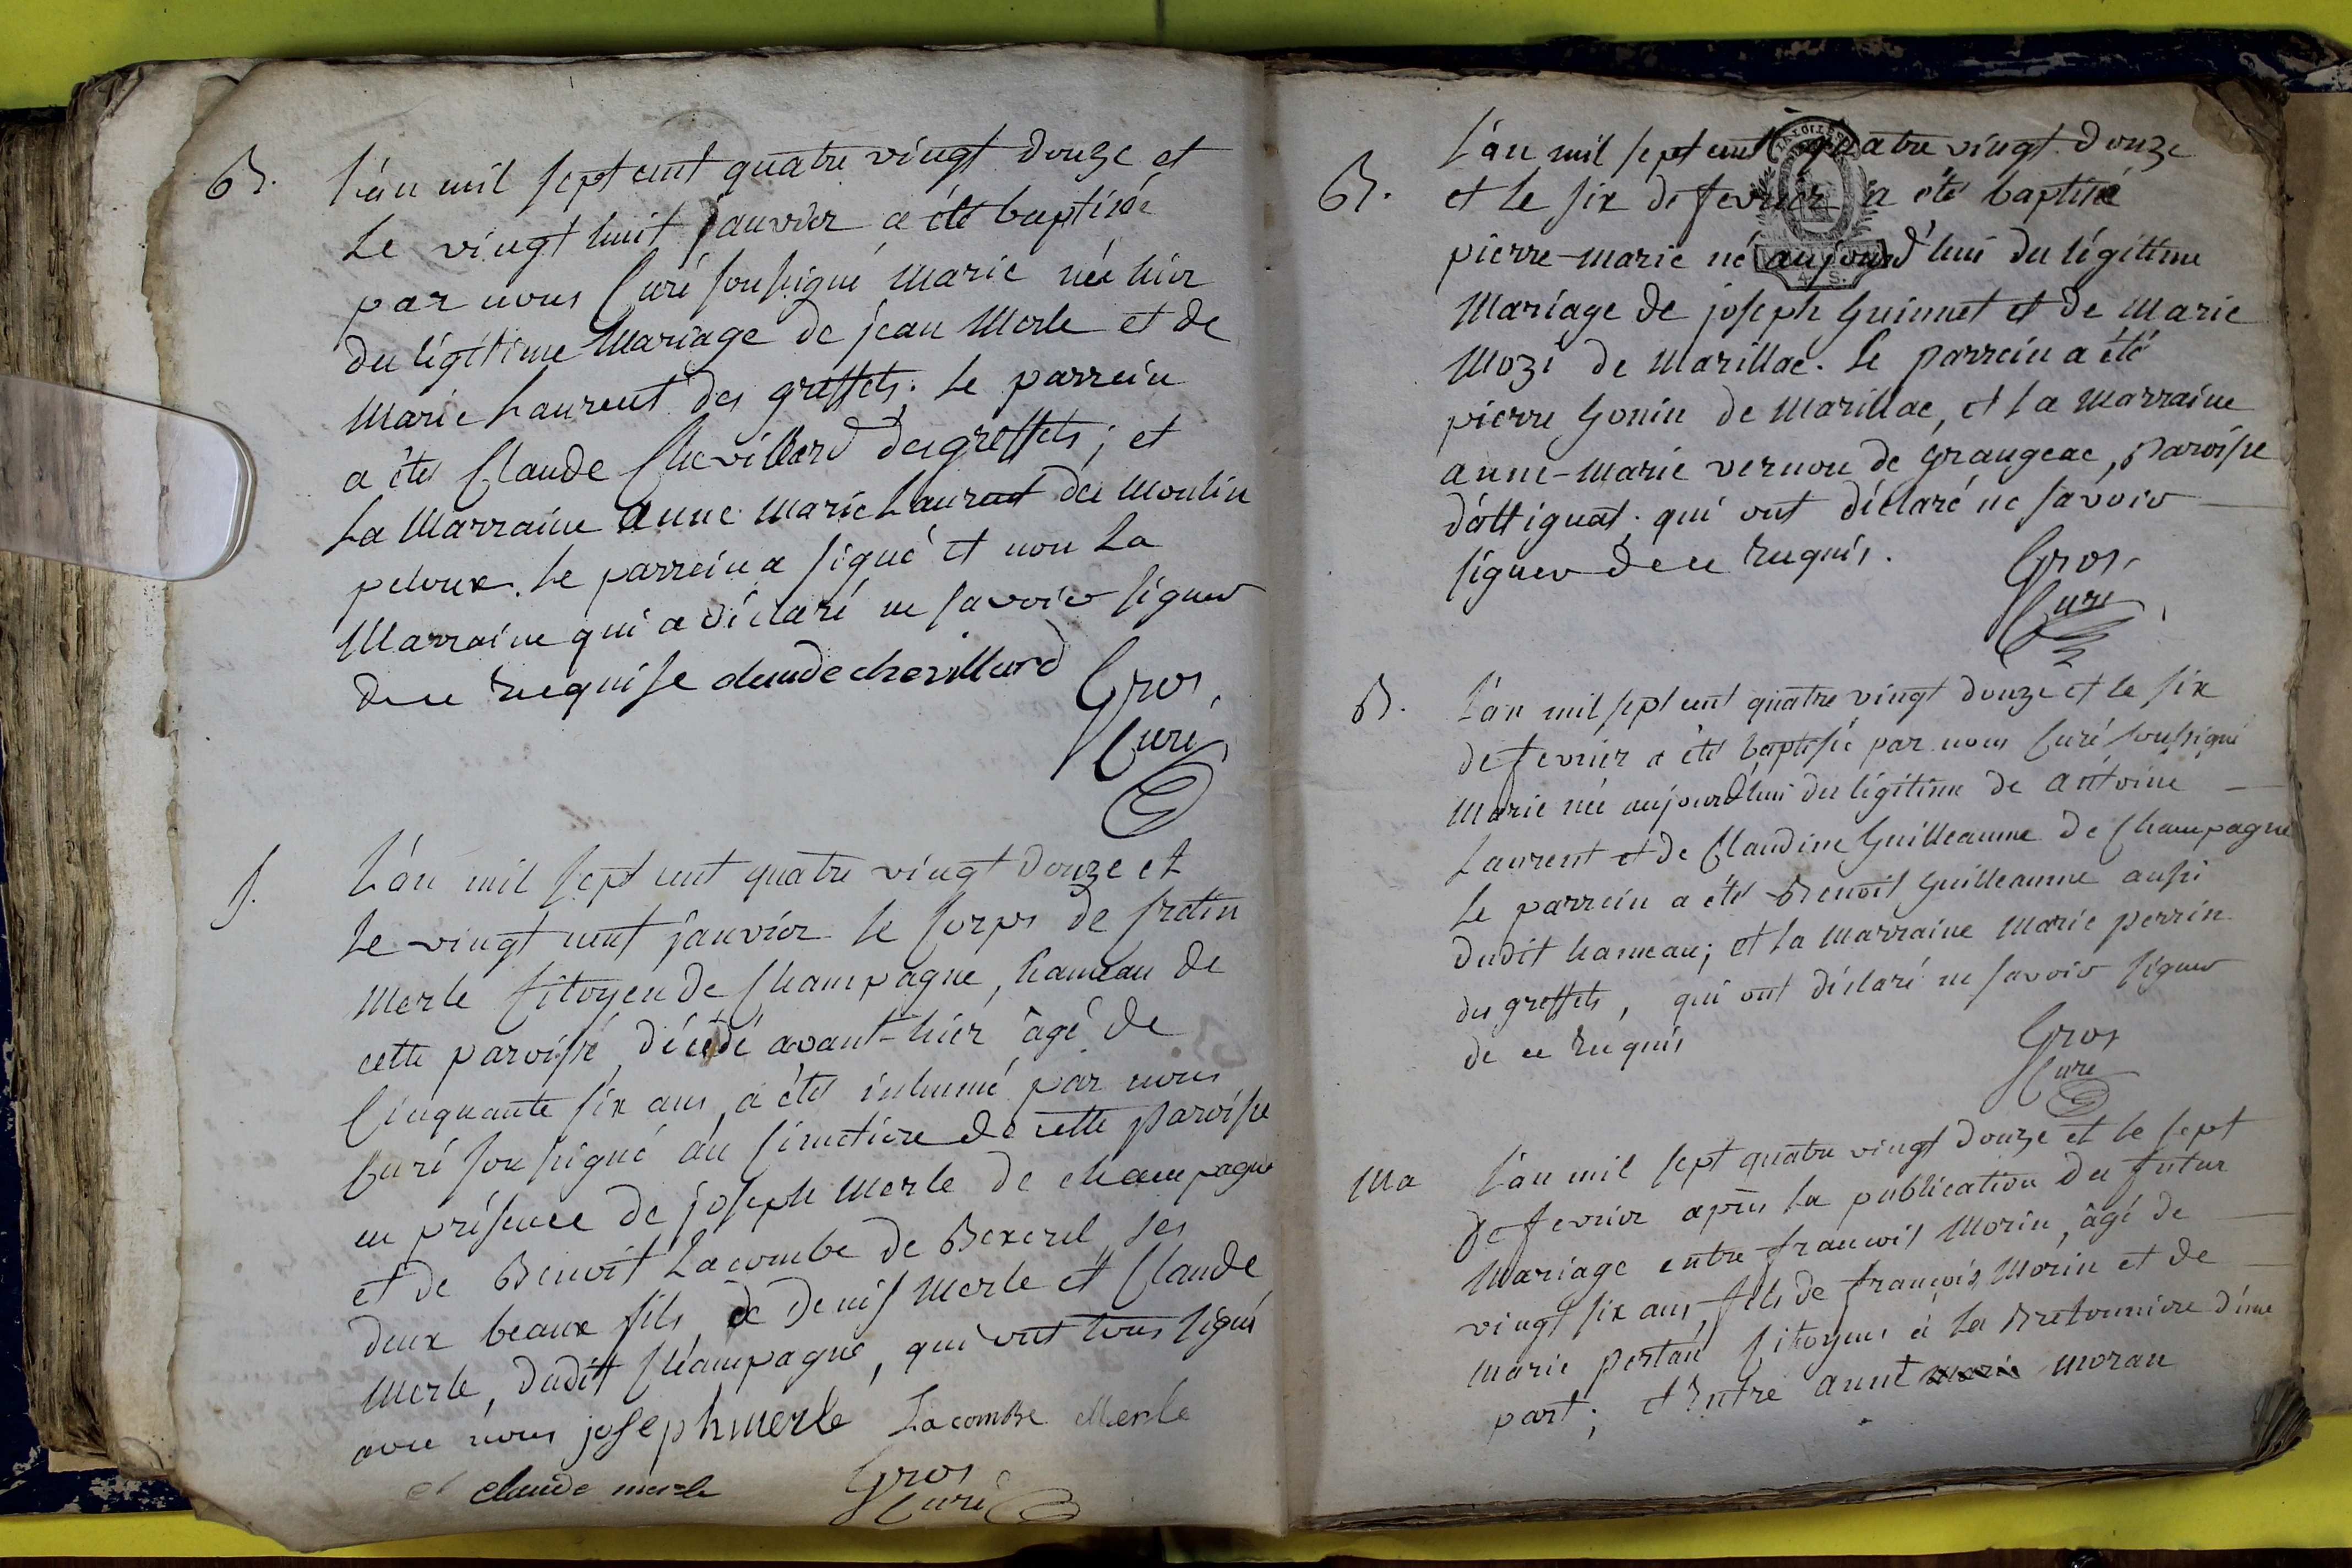 B.
L'an mil sept cent quatre vingt douze et
Le vingt huit janvier a été baptisée
par nous Curé soussigné Marie née hier
du légitime Mariage de jean Merle et de
Marie Laurent des greffets. Le parrein
a été Claude Chevillard des greffets; et
La Marraine Anne Marie Laurent du Moulin
peloux. Le parrein a signé et non La
Marraine qui a déclaré ne savoir signer
de ce Requise claude chevillard
Gros,
Curé
S.
L'an mil sept cent quatre vingt douze et
Le vingt neuf janvier le Corps de
Merle Citoyen de Champagne, hameau de
cette paroisse, décédé avant-hier âgé de
Cinquante six ans, a été inhumé par nous
Curé soussigné au Cimetiere de cette paroisse
en présence de joseph Merle de champagne
et de Benoit Lacombe de Bexerel ses
deux beaux fils, de denis Merle et Claude
Merle, dudit Champagne, qui ont tous signé
avec nous joseph merle Lacombe Merle
claude merle
Gros
Curé
B.
L'an mil sept cent quatre vingt douze
et le six de fevrier a été baptisé
pierre-marie né aujourd'hui du légitime
Mariage de joseph Guinnet et de Marie
Mozi de Marillac. Le parrein a été
pierre Gonin de Marillac, et La Marraine
anne-Marie vernou de Grangeac, paroisse
d'attignat; qui ont déclaré ne savoir
signer de ce Requis.
Gros,
Curé
B.
L'an mil sept cent quatre vingt douze et le six
de fevrier a été baptisée par nous Curé soussigné
Marie née aujourd'hui du légitime de Antoine
Laurent et de Claudine Guilleaume de Champagne
Le parrein a été Benoit Guilleaume aussi
dudit hameau; et La Marraine Marie perrin
des greffets, qui ont déclaré ne savoir signer
de ce Requis
Gros
Curé
Ma
L'an mil sept quatre vingt douze et le sept
de fevrier après La publication du futur
Mariage entre francois Morin, âgé de
vingt six ans, fils de françois Morin et de
Marie Citoyens à La Bretonniere d'une
part; et Entre anne Moran